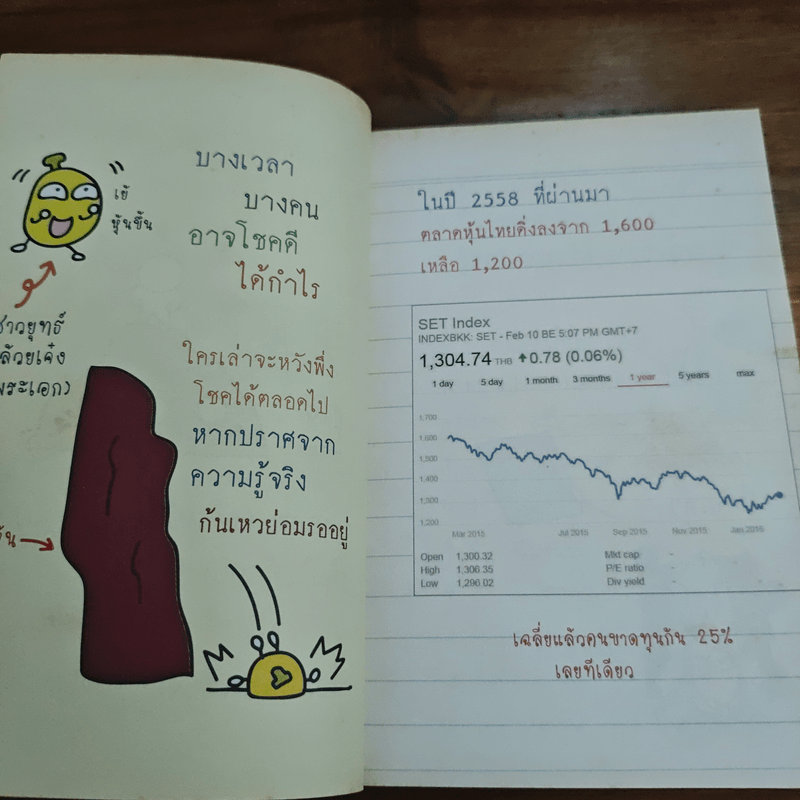 บางเวลา
บางคน
อาจโชคดี
ได้กำไร
เย้
หุ้นขึ้น
ใครเล่าจะหวังพึ่ง
โชคได้ตลอดไป
หากปราศจาก
ความรู้จริง
ก้นเหวย่อมรออยู่
ในปี 2558 ที่ผ่านมา
ตลาดหุ้นไทยดิ่งลงจาก 1,600
เหลือ 1,200
SET Index
INDEXBKK: SET - Feb 10 BE 5:07 PM GMT+7
1,304.74 THB ↑0.78 (0.06%)
1 day 5 day 1 month 3 months 1 year 5 years max
1,700
1,600
1,500
1,400
1,300
1,200
Mar 2015 Jul 2015 Sep 2015 Nov 2015 Jan 2016
Open 1,300.32 Mkt cap -
High 1,306.35 P/E ratio -
Low 1,296.02 Div yield -
เฉลี่ยแล้วคนขาดทุนกัน 25%
เลยทีเดียว